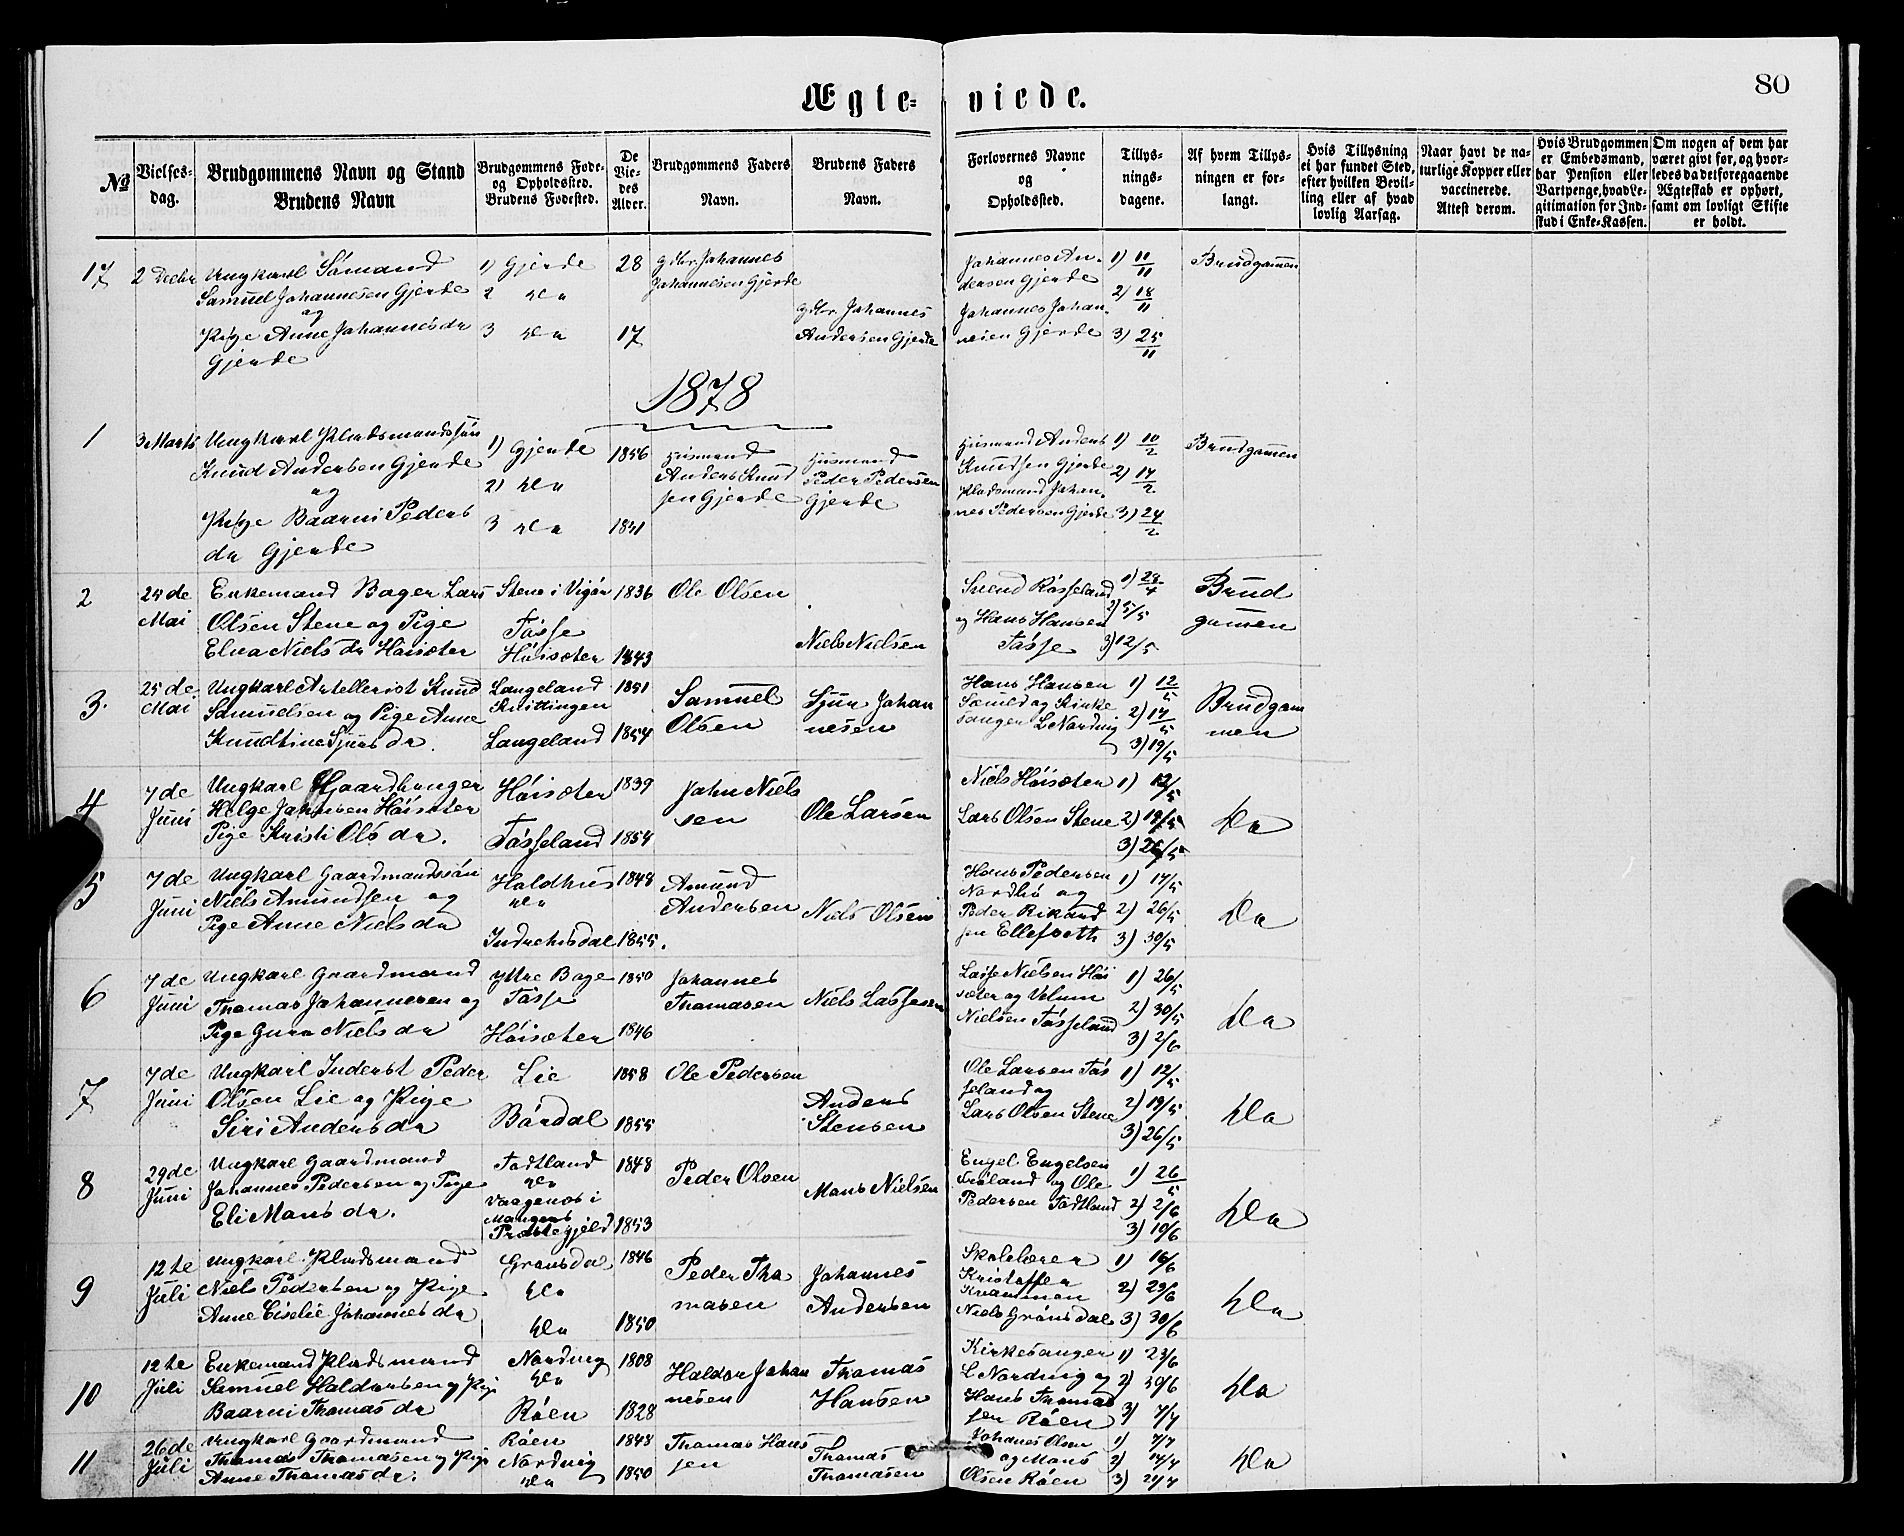 80
Ægte- viede.
No
Vielses-
dag.
Brudgommens Navn og Stand
Brudens Navn
Brudgommens Føde-
og Opholdssted.
Brudens Fødested.
De
Vie-
des
Alder.
Brudgommens Faders
Navn.
Brudens Faders
Navn.
Forlovernes Navne
og
Opholdssted.
Tillys-
nings-
dagene.
Af hvem Tillys-
ningen er for-
langt.
Hvis Tillysning
ei har fundet Sted,
efter hvilken Bevil-
ling eller af hvad
lovlig Aarsag.
Naar havt de na-
turlige Kopper eller
vaccinerede.
Attest derom.
Hvis Brudgommen
er Embedsmand,
har Pension eller
Vartpenge, hvad Le-
gitimation for Ind-
skud i Enke-Kassen.
Om nogen af dem har
været givt før, og hvor-
ledes da det foregaaende
Ægteskab er ophørt,
samt om lovligt Skifte
er holdt.
17
2 Decbr
Ungkarl Sømand
Samuel Johannesen Gjerde
og
Pige Anne Johannesdr
Gjerde
1) Gjerde
2 do
3 do
28
17
gdbr. Johannes
Johannesen Gjerde
gdbr. Johannes
Andersen Gjerde
Johannes An-
dersen Gjerde
Johannes Johan-
nesen Gjerde
1) 11/11
2) 18/11
3) 25/11
Brudgommen
1878
1
3 Marts
Ungkarl Pladsmandssøn
Knud Andersen Gjerde
og
Pige Baarni Peders
dr Gjerde
1) Gjerde
2) do
3 do
1856
1851
Husmand
Anders Knud
sen Gjerde
Husmand
Peder Pedersen
Gjerde
Husmand Anders
Knudsen Gjerde
Pladsmand Johan-
nes Pedersen Gjerde
1) 10/2
2) 17/2
3) 24/2
Brudgommen
2
25de
Mai
Enkemand Bager Lars
Olsen Stene og Pige
Elna Niels dr Høisæter
Stene i Vigør
Tøsse
Høisæter
1836
1843
Ole Olsen
Niels Nielsen
Svend Røsseland
og Hans Hansen
Tøsse
1) 28/4
2) 5/5
3) 12/5
Brud
gommen
3.
25de
Mai
Ungkarl Artellerist Knud
Samuelsen og Pige Anne
Knudtine Sjurs dr.
Langeland
Kvittingen
Langeland
1851
1854
Samuel
Olsen
Sjur Johan
nesen
Hans Hansen
og Kirke
sanger L Nordvig
1) 12/5
2) 17/5
3) 19/5
Brudgom
men
4
7de
Juni
Ungkarl Gjaardbruger
Helge Johnsen Høisæter
Pige Kristi Ols dr.
Høisæter
Tøsseland
1839
1854
John Niels
sen
Ole Larsen
Niels Høisæter
Lars Olsen Stene
1) 12/5
2) 19/5
3) 26/5
do
5
7de
Juni
Ungkarl Gaardmandssøn
Niels Amundsen og
Pige Anne Niels dr
Haldhus
do
Indrehisdal
1848
1855.
Amund
Andersen
Niels Olsen
Hans Pedersen
Nordbø og
Peder Rikard
sen Ellefseth
1) 17/5
2) 26/5
3) 30/5
do
6
7de
Juni
Ungkarl Gaardmand
Thomas Johannesen og
Pige Guro Niels dr
Yttre Boge
Tøsse
Høisæter
1850
1846
Johannes
Thomasen
Niels Lassesen
Lasse Nielsen Høi
sæter og Velum
Nielsen Tøsseland
1) 26/5
2) 30/5
3) 2/6
do
7
7de
Juni
Ungkarl Inderst Peder
Olsen Lie og Pige
Siri Anders dr
Lie
Børdal
1858
1855
Ole Pedersen
Anders
Stensen
Ole Larsen Tøs
seland og
Lars Olsen Stene
1) 12/5
2) 19/5
3) 26/5
do
8
29de
Juni
Ungkarl Gaardmand
Johannes Pedersen og Pige
Eli Mons dr.
Fodtland
do
Vaagenes i
Mangers
Præstegjeld
1848
1853
Peder Olsen
Mons Nielsen
Engel Engelsen
Frøland og Ole
Pedersen Fodtland
1) 26/5
2) 2/6
3) 10/6
do
9
12te
Juli
Ungkarl Pladsmand
Niels Pedersen og Pige
Anne Ciselie Johannes dr
Grønsdal
do
do
1846
1850
Peder Tho
masen
Johannes
Andersen
Skolelærer
Kristoffer
Kvammen
Niels Grønsdal
1) 16/6
2) 23/6
3) 30/6
do
10
12te
Juli
Enkemand Pladsmand
Samuel Haldorsen og Pige
Baarni Thomas dr
Nordvig
do
Røen
1808
1828
Haldor Johan
nesen
Thomas
Hansen
Kirkesanger
L Nordvig og
Hans Thomas
sen Røen
1) 23/6
2) 30/6
3) 7/7
do
11
26de
Juli
Ungkarl Gaardmand
Thomas Thomasen og Pige
Anne Thomas dr.
Røen
Nordvig
do
1848
1850
Thomas Hans
sen
Thomas
Thomasen
Johanes Olsen
og Mons
Olsen Røen
1) 7/7
2) 14/7
3) 21/7
do